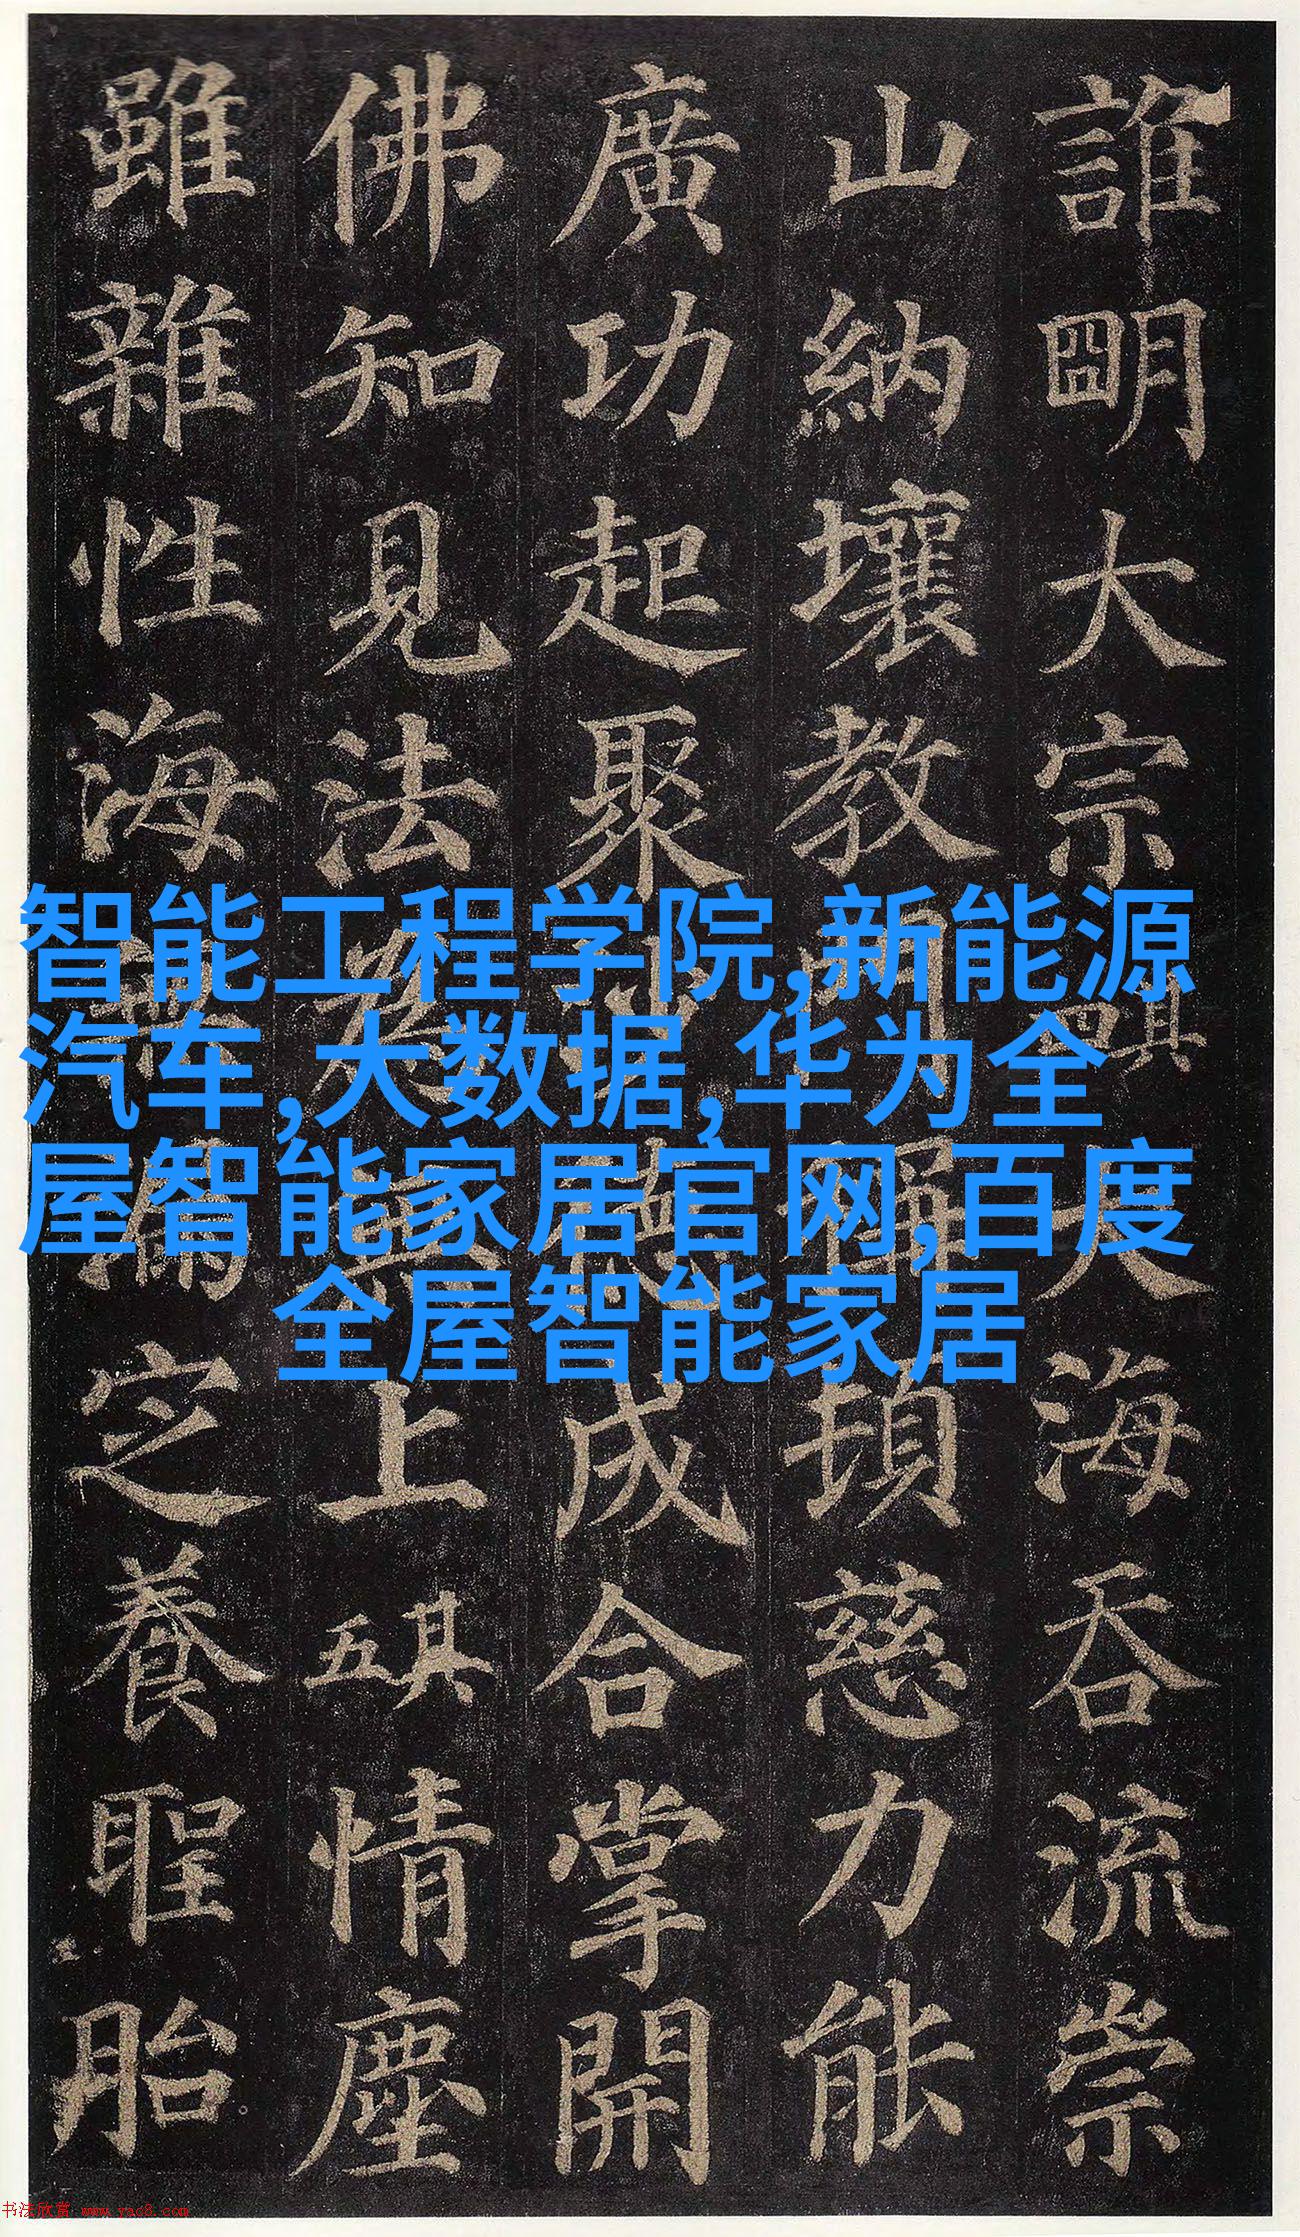 誰朙大宗其四大海吞流崇
山納壤教門稱頓慈力能
廣功起聚沙德成合掌開
佛知見法為無上其五情塵
雖雜性海無漏定養聖胎
智能工程学院,新能源
汽车,大数据,华为全
屋智能家居官网,百度
全屋智能家居
书法欣赏 www.yac8.com